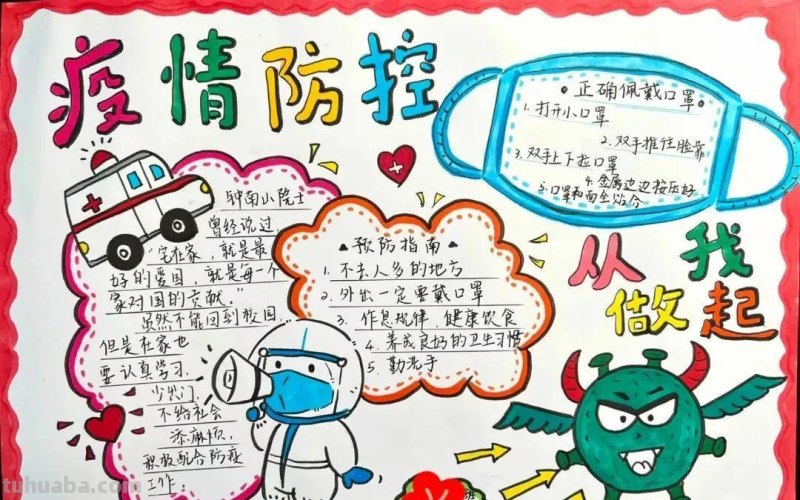 疫情防控
·正确佩戴口罩·
1. 打开小口罩
2. 双手推住脸靠
3. 双手上下拉口罩
4. 金属边边按压好
5. 口罩和面全贴合
钟南山院士
曾经说过,
“宅在家,就是最
好的爱国,就是每一个
家对国的贡献。”
虽然不能回到校园
但是在家也
要认真学习.
少出门,
不给社会
添麻烦,
积极配合防疫
工作;
▲预防指南▲
1. 不去人多的地方
2. 外出一定要戴口罩
3. 作息规律,健康饮食
4. 养成良好的卫生习惯
5. 勤洗手
从我
做起
tuhuaba.com